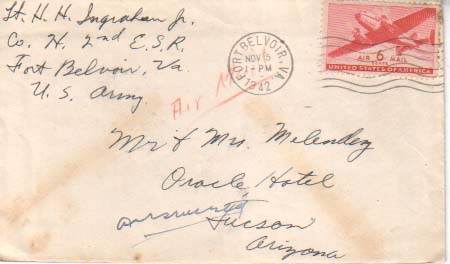 Lt. H. H. Ingraham Jr.
Co. H. 2nd E.S.R.
Fort Belvoir, Va.
U. S. Army
Air Mail
FORT BELVOIR, VA.
NOV 5
PM
1942
AIR 6¢ MAIL
UNITED STATES OF AMERICA
Mr & Mrs. Melendey
Oracle Hotel
answered
Tucson
Arizona